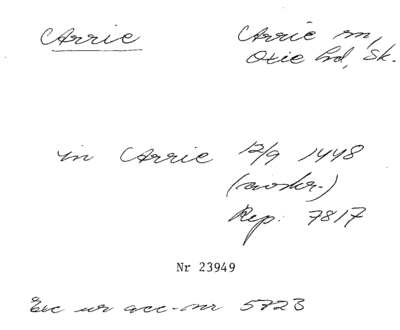 Carrie Carrie sn,
Oxie hd, Sk.
in Carrie 12/9 1448
(avskr.)
Rep. 7817
Nr 23949
Exc ur acc-nr 5723